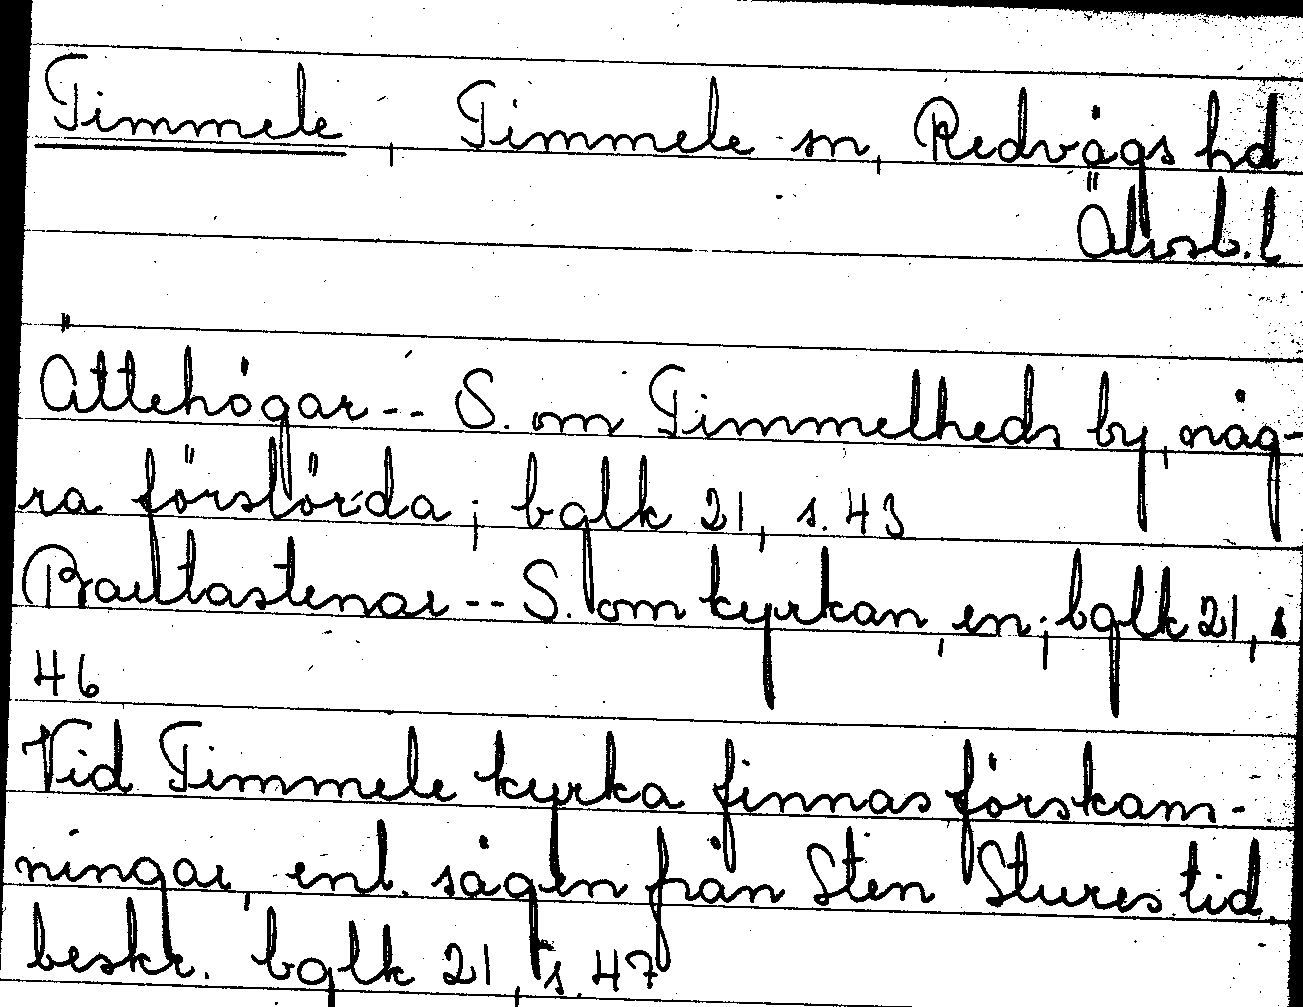 Timmele, Timmele sn, Redvägs hd
Älvsb.l
Ättehögar -- S. om Timmelheds by, någ-
ra förstörda; bglk 21, s. 43
Bautastenar -- S. om kyrkan, en; bglk 21, s
46
Vid Timmele kyrka finnas förskans-
ningar, enl. sägen från Sten Stures tid.
beskr. bglk 21, s. 47